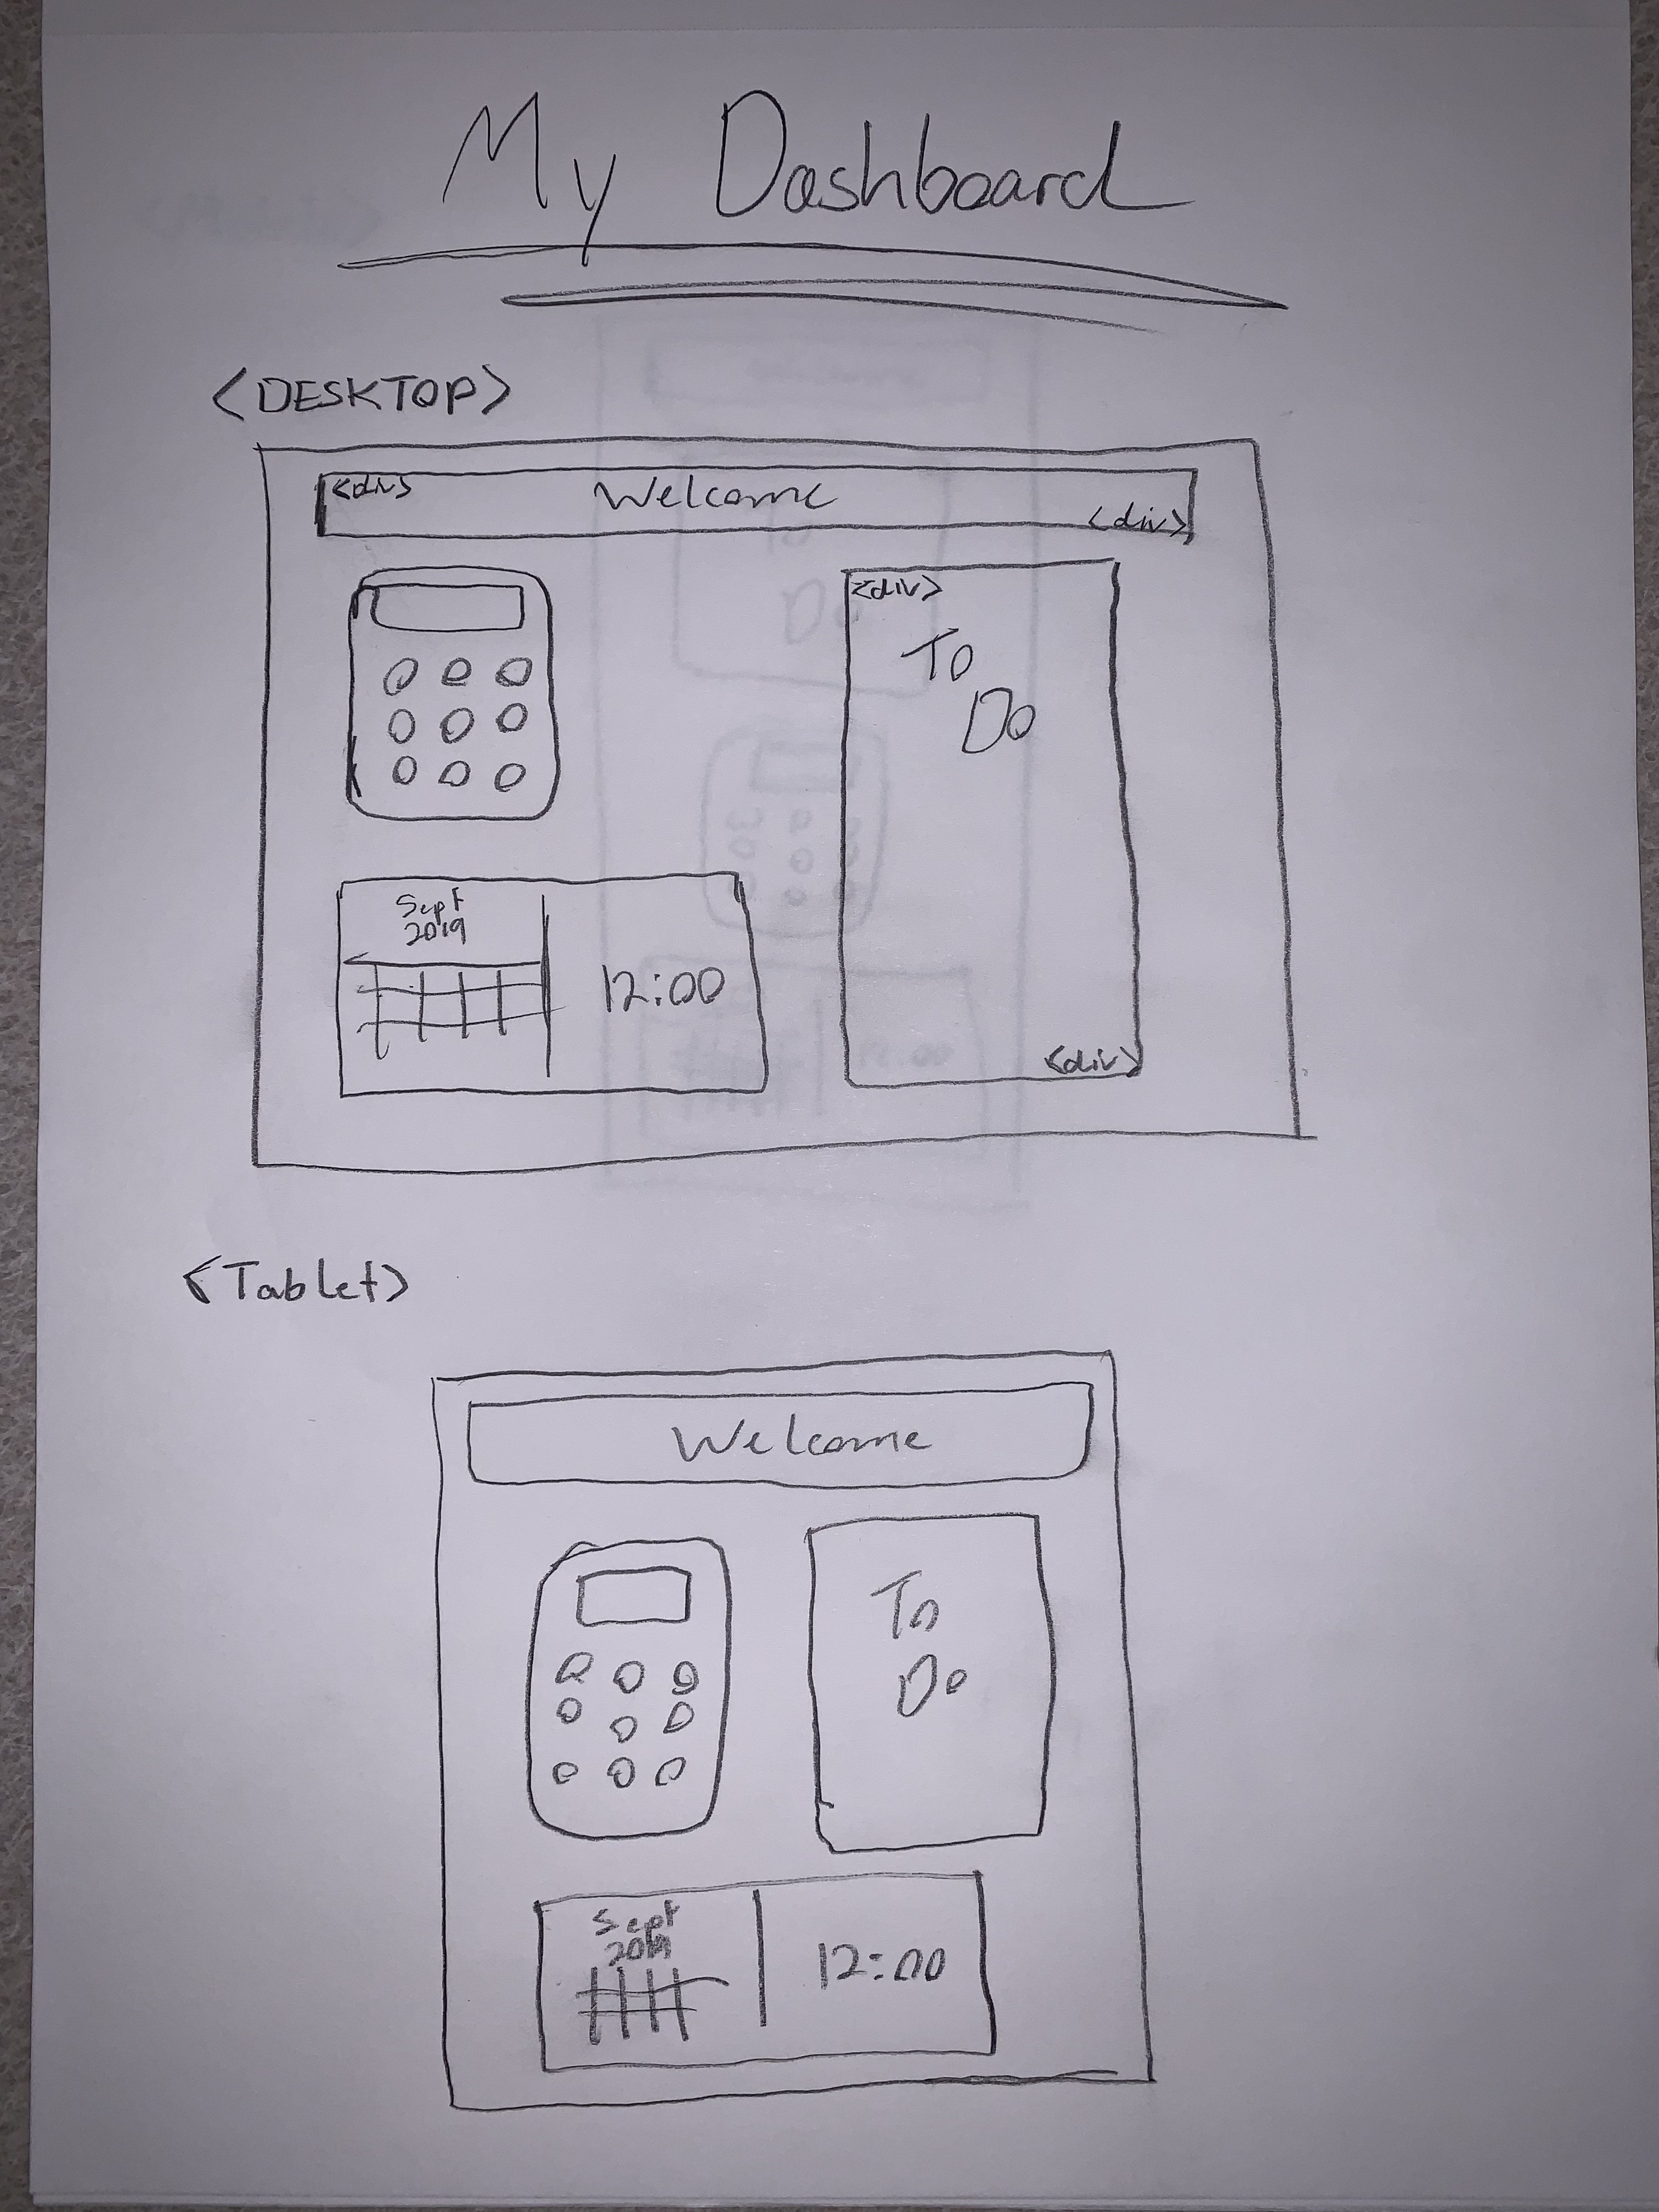 My Dashboard
<DESKTOP>
<div>
Welcome
<div>
<div>
To
Do
Sept
2019
12:00
<div>
<Tablet>
Welcome
To
Do
Sept
2019
12:00